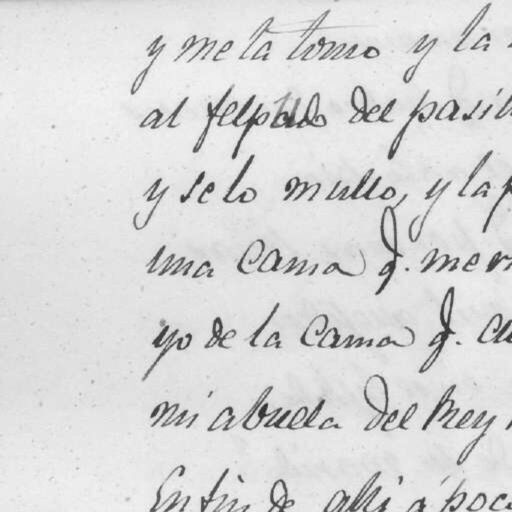 y me la tomo y la
al felpudo del pasil
y se lo mullo, y la p
una cama q. me
yo de la cama q. cu
mi abuela del Rey
En fin de alli á poc